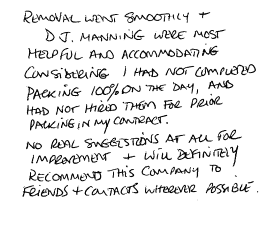 REMOVAL WENT SMOOTHLY +
D J. MANNING WERE MOST
HELPFUL AND ACCOMMODATING
CONSIDERING I HAD NOT COMPLETED
PACKING 100% ON THE DAY, AND
HAD NOT HIRED THEM FOR PRIOR
PACKING IN MY CONTRACT.
NO REAL SUGGESTIONS AT ALL FOR
IMPROVEMENT + WILL DEFINITELY
RECOMMEND THIS COMPANY TO
FRIENDS + CONTACTS WHEREVER POSSIBLE.